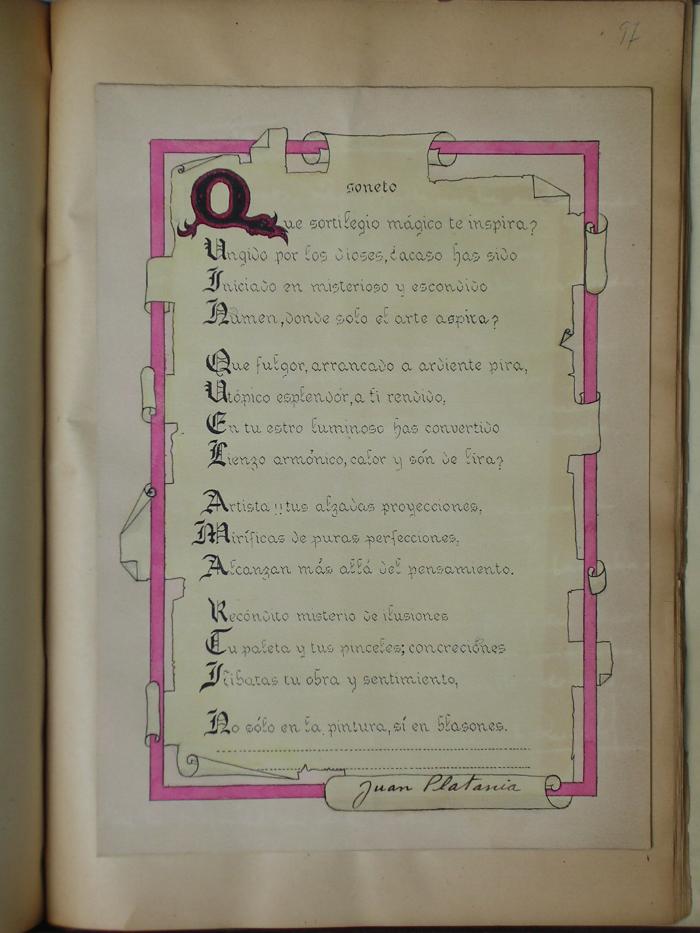 97
soneto
Que sortilegio mágico te inspira?
Ungido por los dioses, ¿acaso has sido
Iniciado en misterioso y escondido
Númen, donde solo el arte aspira?
Que fulgor, arrancado a ardiente pira,
Utópico esplendor, a ti rendido,
En tu estro luminoso has convertido
Lienzo armónico, calor y són de lira?
Artista!! tus alzadas proyecciones,
Miríficas de puras perfecciones,
Alcanzan más allá del pensamiento.
Recóndito misterio de ilusiones
Tu paleta y tus pinceles; concreciónes
tu obra y sentimiento,
No sólo en la pintura, sí en blasones.
Juan Platania